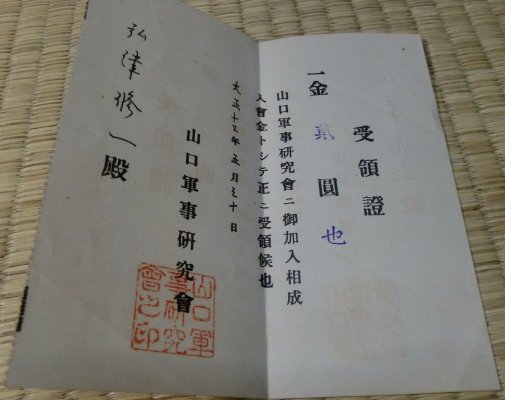 受領證
一金貳圓也
山口軍事研究會ニ御加入相成
入會金トシテ正ニ受領候也
大正十三年五月三十日
山口軍事研究會
山口軍事研究會之印
弘津修一殿